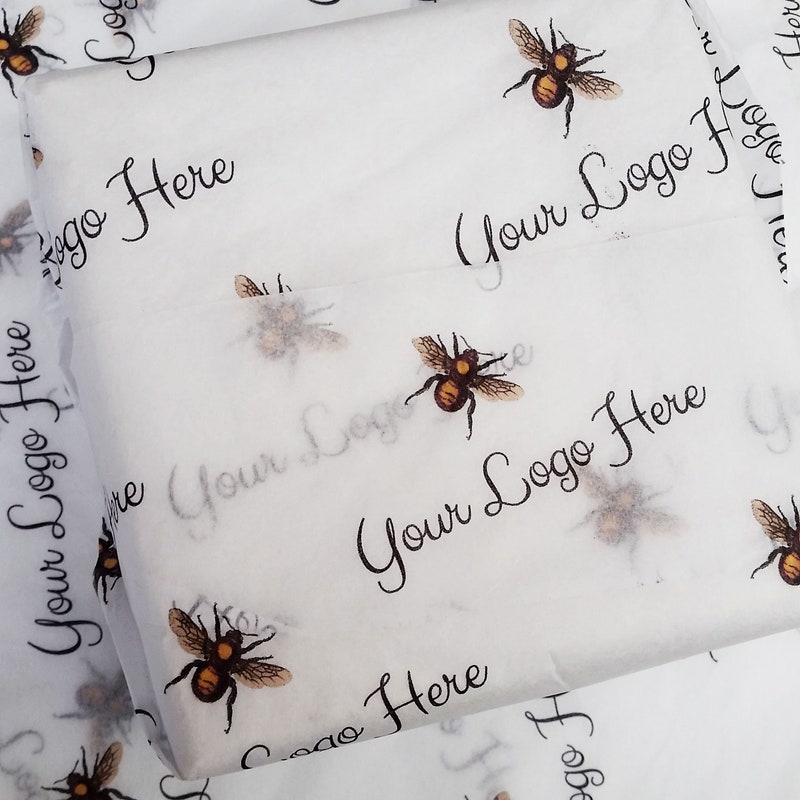 Logo
Your Logo Here
Logo Here
Your Logo H
Your Logo Here
Your Logo Here
Your Logo Here
Here
Logo Here
Logo